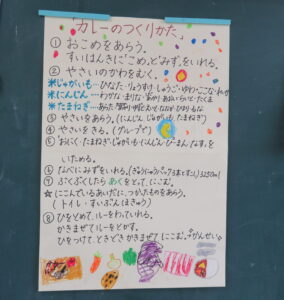 「カレーのつくりかた」
① おこめをあらう。
すいはんきに、こめとみずをいれる。
② やさいのかわをむく。
※じゃがいも…ひなた・りょうすけ・しゅうご・ゆう
※にんじん…わかな・まりな
※たまねぎ…あらた
③ やさいをあらう。(にんじん、じゃがいも、たまねぎ)
④ やさいをきる。(グループで)
⑤ おにく・たまねぎ・じゃがいも・にんじん・ぴーまん・なすを、
いためる。
⑥ なべにみずをいれる。
⑦ ぶくぶくしたらあくをとって、にこむ。
☆にこんでいるあいだに、つかったものをあらう。
(トイレ・すいぶん
⑧ ひをとめて、ルーをわっていれる。
かきまぜてルーをとかす。
ひをつけて、ときどきかきまぜてにこむ。かんせい